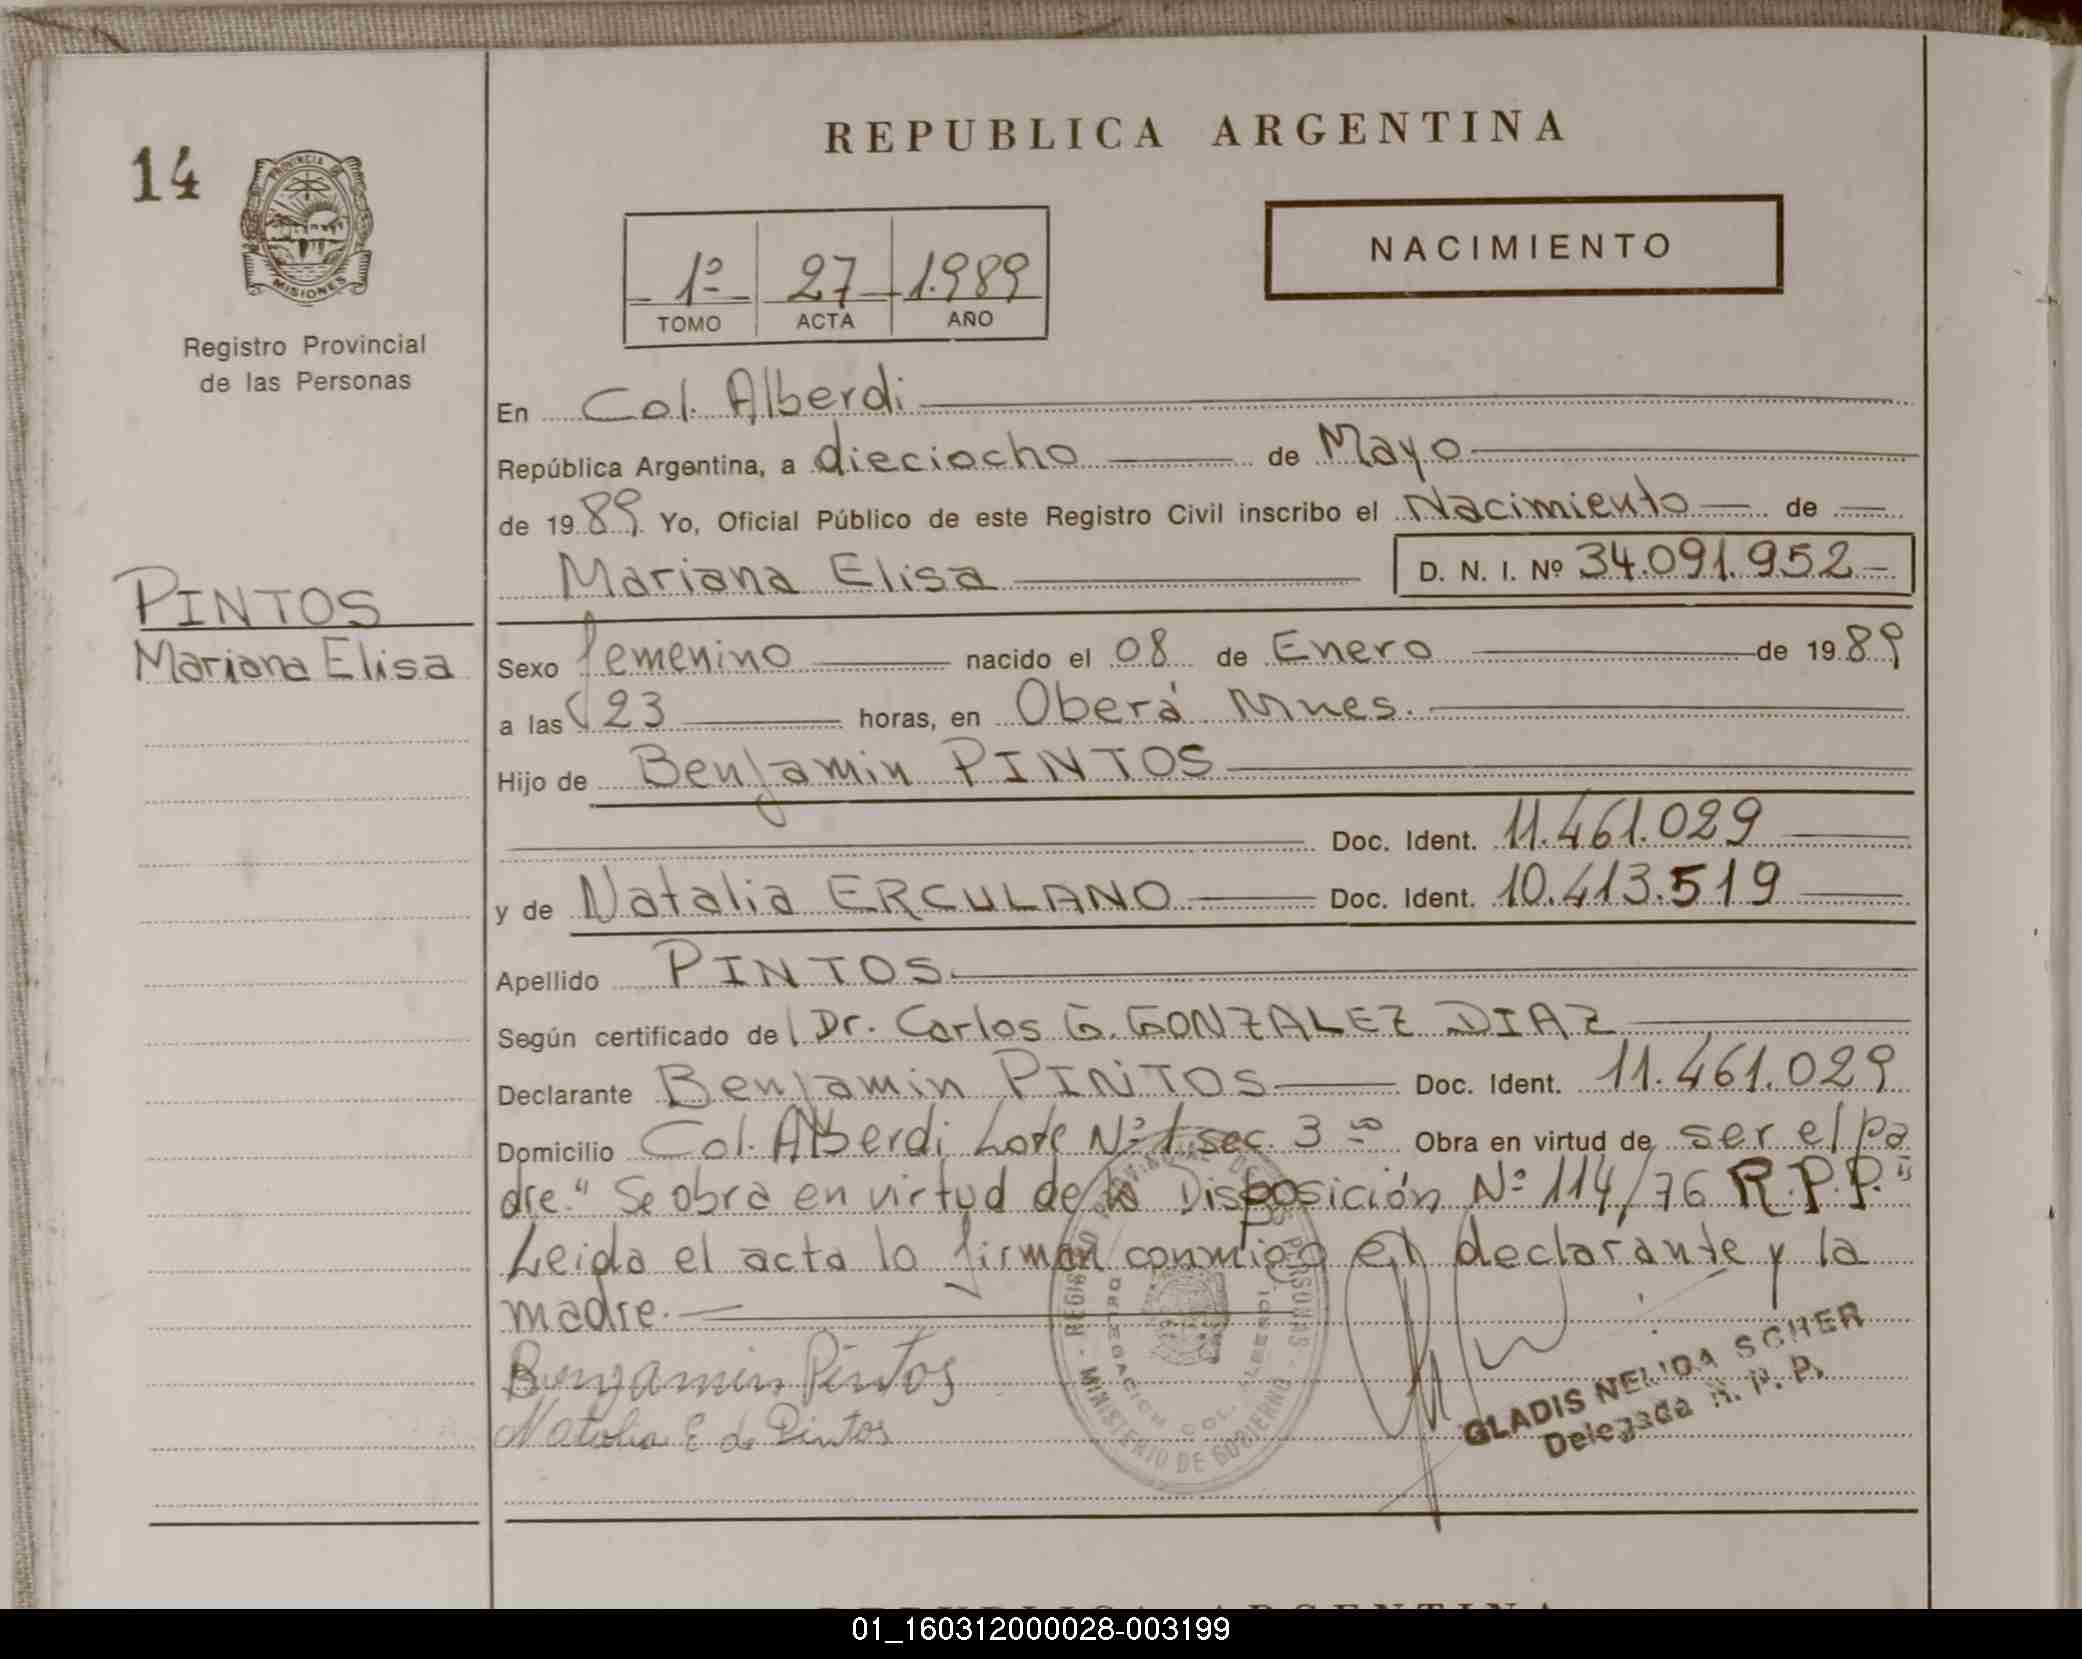 14
PROVINCIA DE
MISIONES
Registro Provincial
de las Personas
PINTOS
Mariana Elisa
REPUBLICA ARGENTINA
NACIMIENTO
1º 27 1.989
TOMO ACTA AÑO
En Col. Alberdi
República Argentina, a dieciocho de Mayo
de 1989. Yo, Oficial Público de este Registro Civil inscribo el Nacimiento de
Mariana Elisa D. N. I. Nº 34.091.952
Sexo femenino nacido el 08 de Enero de 1989
a las 23 horas, en Oberá Mnes.
Hijo de Benjamin PINTOS
Doc. Ident. 11.461.029
y de Natalia ERCULANO Doc. Ident. 10.413.519
Apellido PINTOS
Según certificado del Dr. Carlos G. GONZALEZ DIAZ
Declarante Benjamin PINTOS Doc. Ident. 11.461.029
Domicilio Col. Alberdi Lote Nº 1 sec. 3ª Obra en virtud de ser el pa
dre. "Se obra en virtud de la Disposición Nº 114/76 R.P.P."
Leida el acta la firman conmigo el declarante y la
madre.
Benjamin Pintos
Natalia E de Pintos
REGISTRO PROVINCIAL DE LAS PERSONAS - MINISTERIO DE GOBIERNO -
DELEGACION COL. ALBERDI
GLADIS NELIDA SCHER
Delegada R. P. P.
01_160312000028-003199